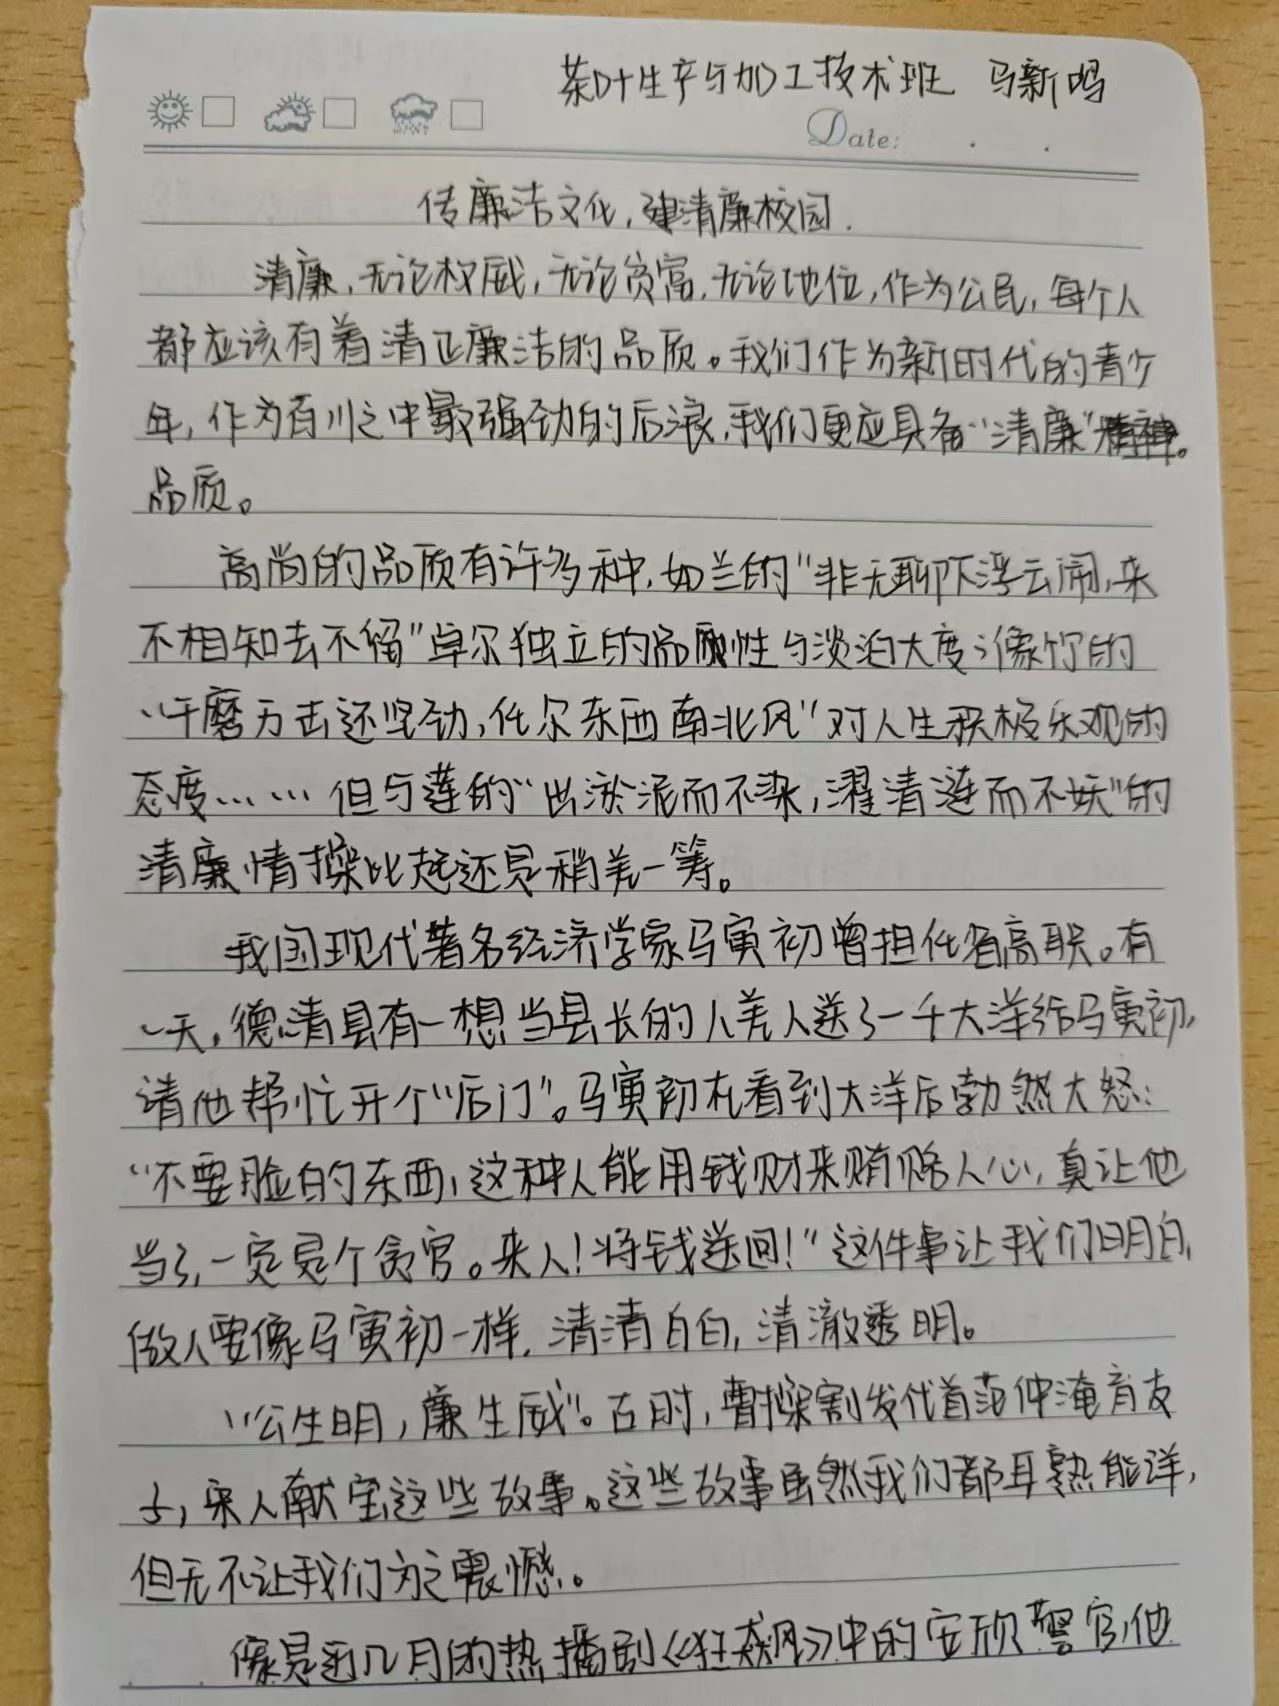 茶叶生产与加工技术班 马新鸣
Date:
传廉洁文化,建清廉校园.
清廉,无论权威,无论贫富,无论地位,作为公民,每个人
都应该有着清正廉洁的品质。我们作为新时代的青少
年,作为百川之中最强劲的后浪,我们更应具备“清廉”
品质。
高尚的品质有许多种,如兰的“非无聊下浮云闹,来
不相知去不留”卓尔独立的品性与淡泊大度;像竹的
“千磨万击还坚劲,任尔东西南北风”对人生积极乐观的
态度……但与莲的“出淤泥而不染,濯清涟而不妖”的
清廉情操比起还是稍差一筹。
我国现代著名经济学家马寅初曾担任省高职。有
一天,德清县有一想当县长的人差人送了一千大洋给马寅初,
请他帮忙开个“后门”。马寅初在看到大洋后勃然大怒:
“不要脸的东西,这种人能用钱财来贿赂人心,真让他
当了,一定是个贪官。来人!将钱送回!”这件事让我们明白,
做人要像马寅初一样,清清白白,清澈透明。
“公生明,廉生威”。古时,曹操割发代首范仲淹育友
子,宋人献宝这些故事。这些故事虽然我们都耳熟能详,
但无不让我们为之震憾。
像是近几月的热播剧《狂飙》中的安欣警官,他